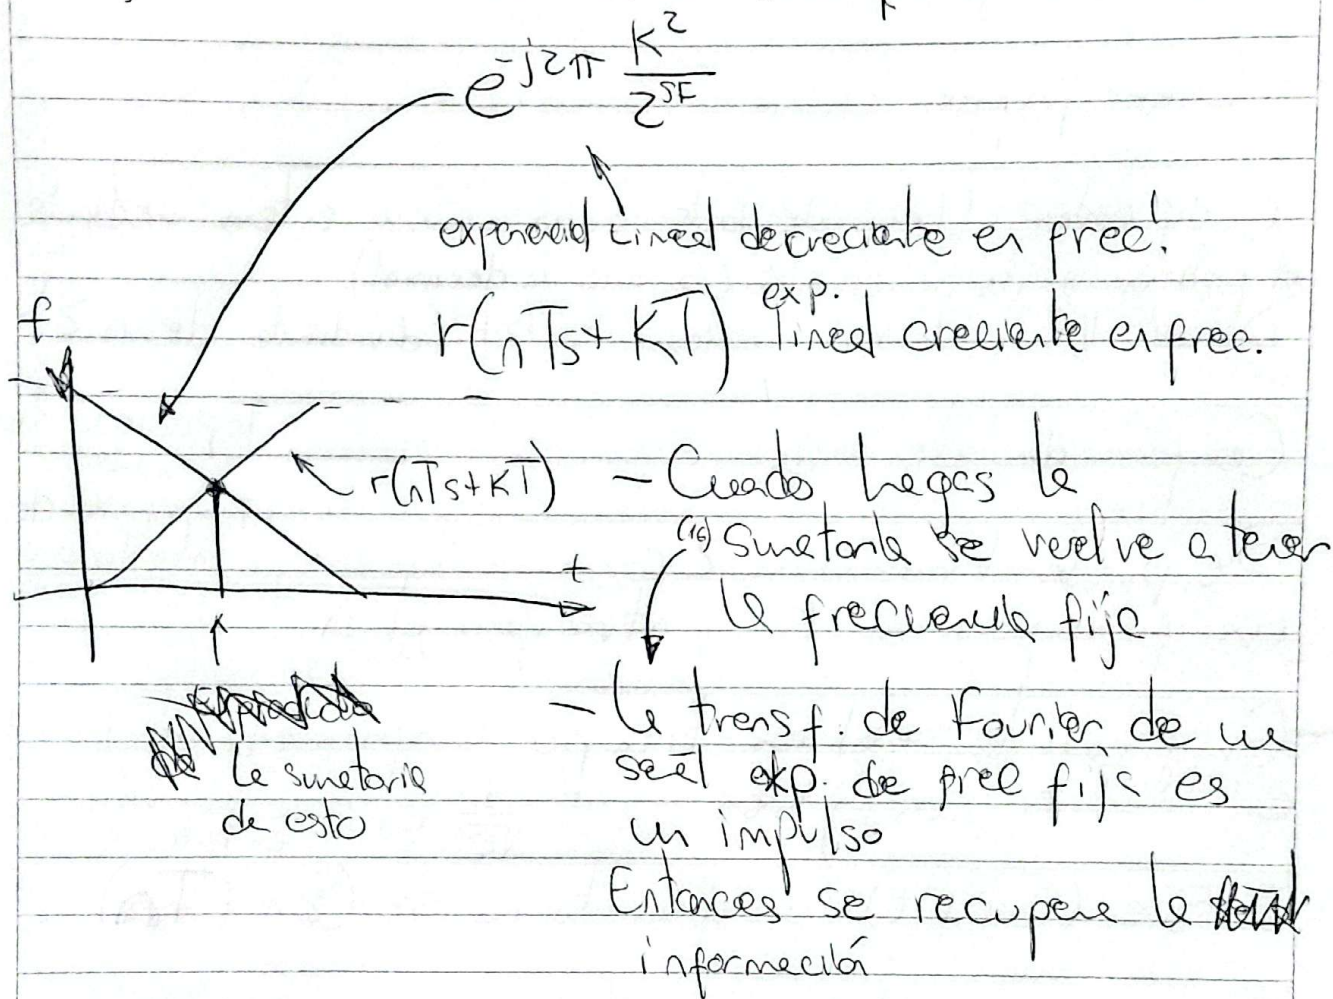 e^{-j2π \frac{K^2}{2^{SF}}}
exponencial Lineal decreciente en frec.
r(nTs+KT) exp. lineal creciente en frec.
f
r(nTs+KT)
t
la sumatoria
de esto
- Cuando hagas la
(16) Sumatoria se vuelve a tener
la frecuencia fija
- la transf. de Fourier de una
señal exp. de frec fija es
un impulso
Entonces se recupera la
información